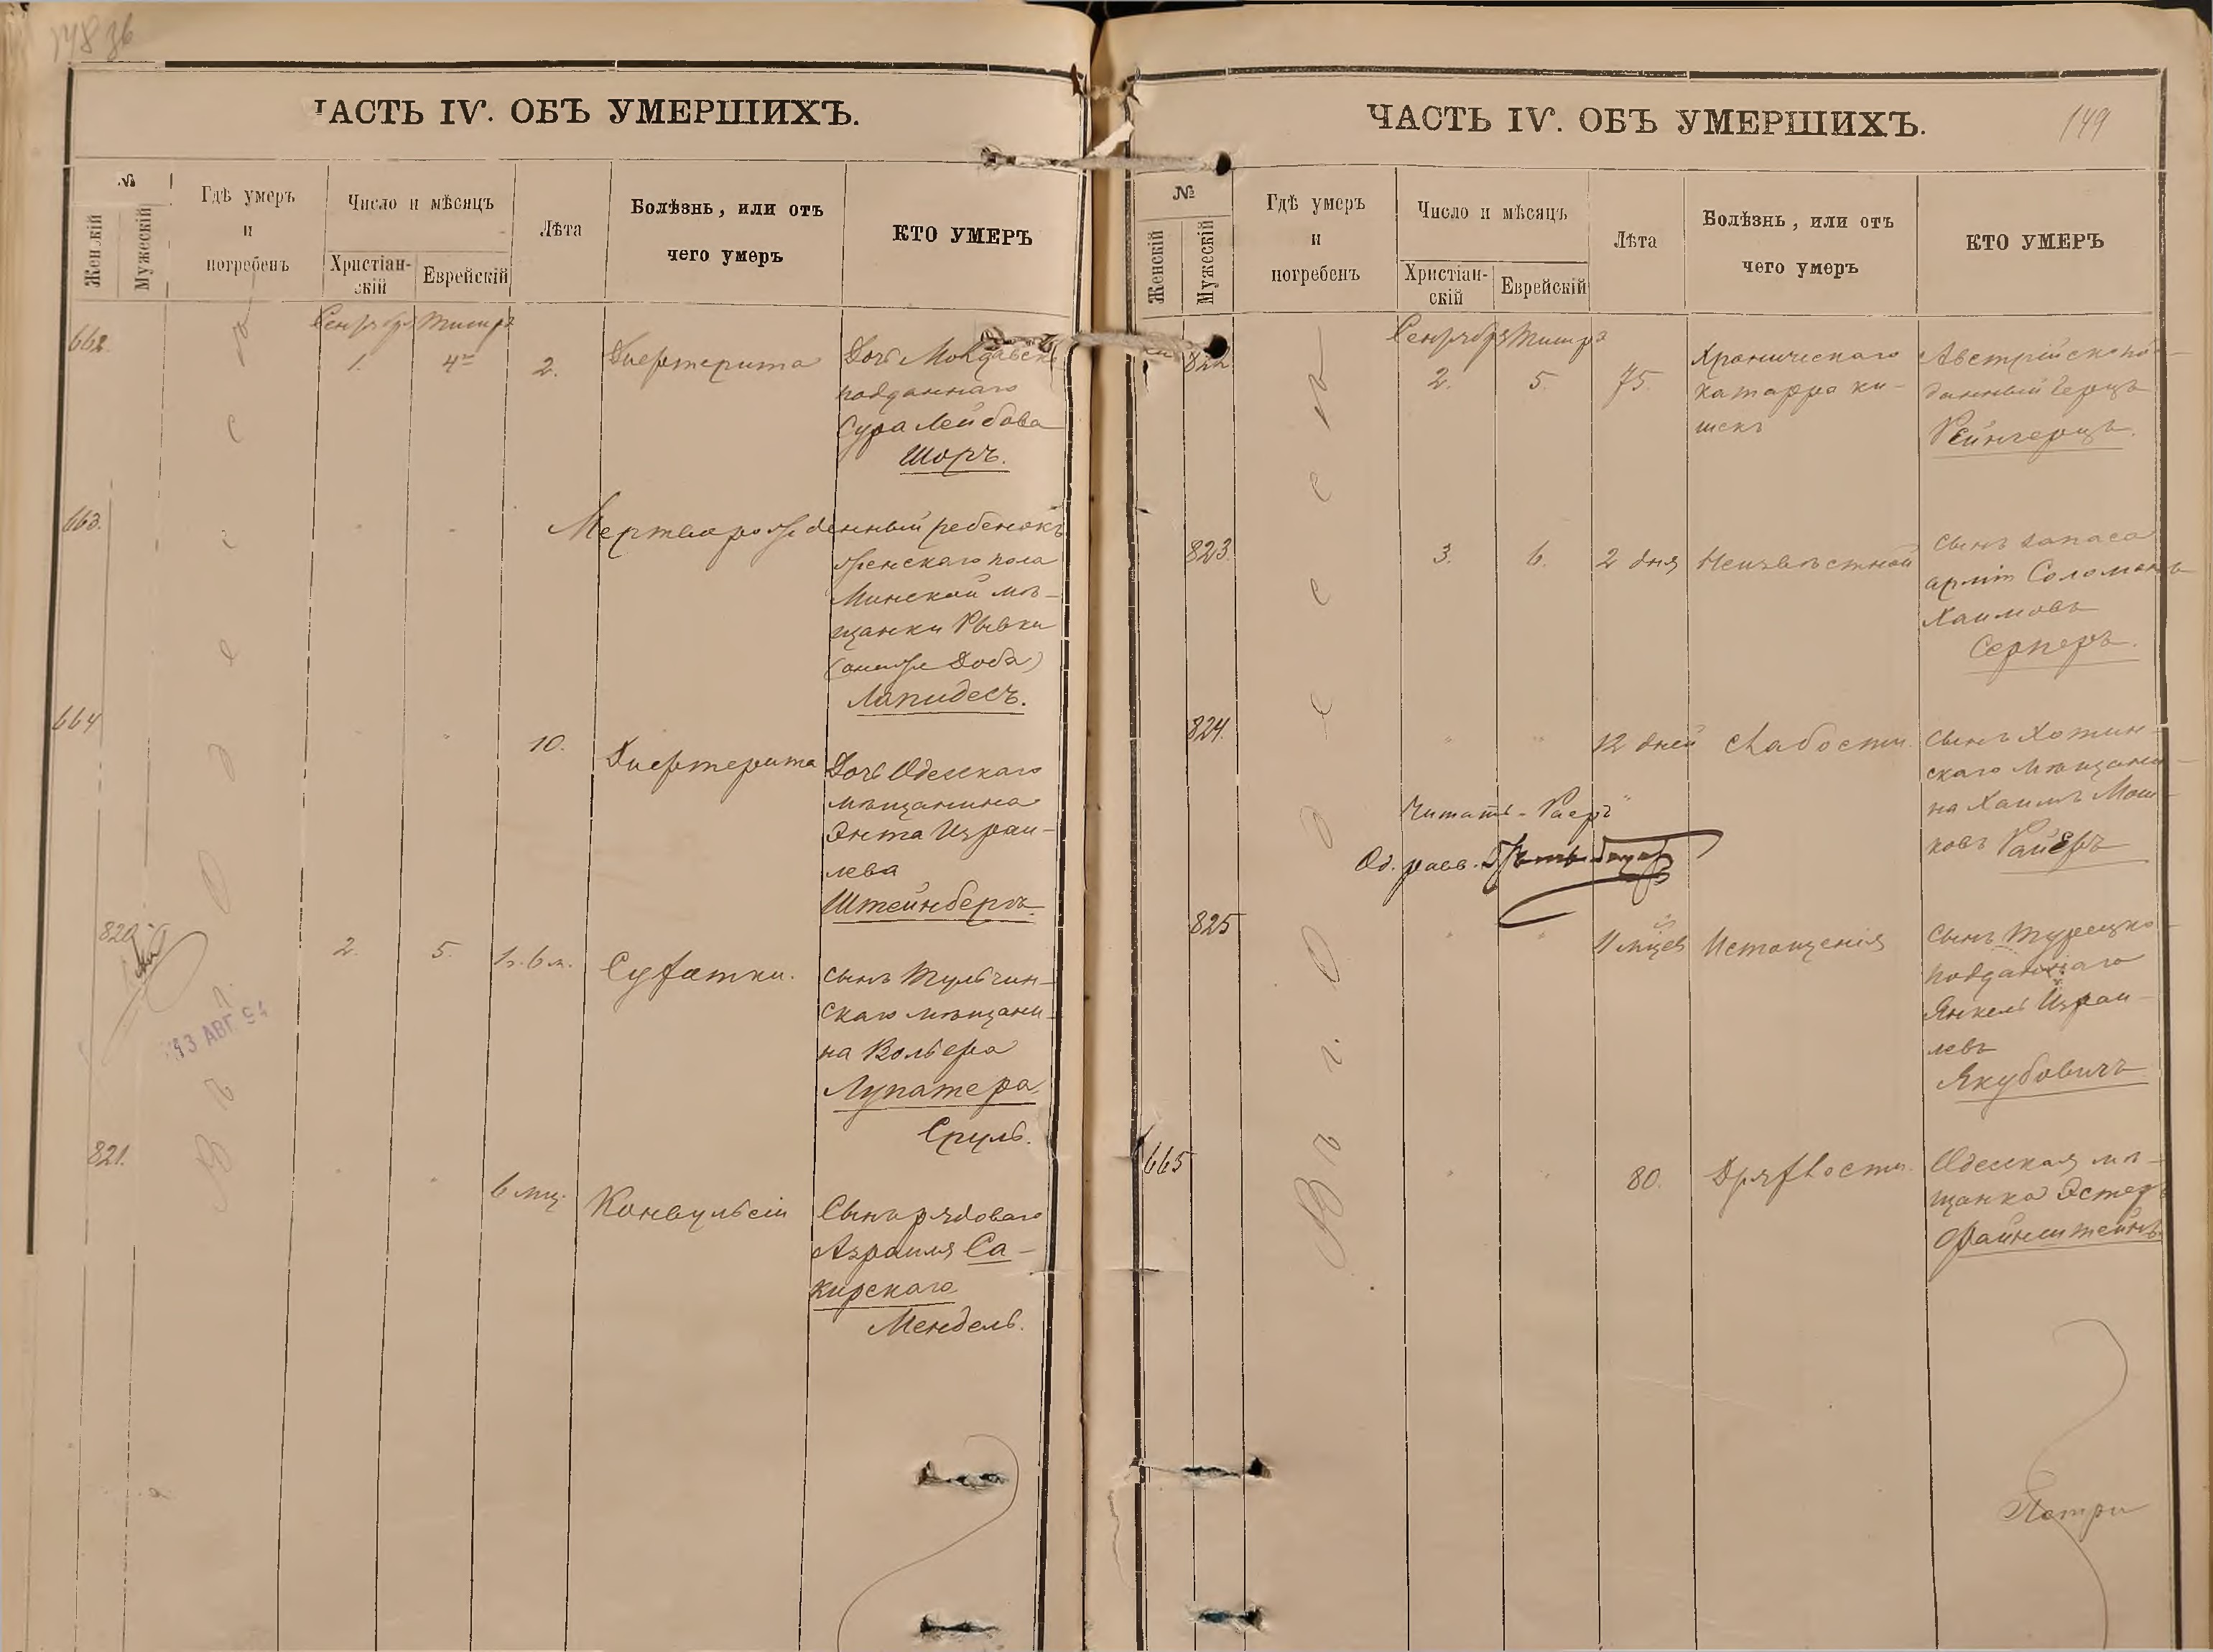 148 об
ЧАСТЬ IV. ОБЪ УМЕРШИХЪ.
№
Женскій
Мужескій
Гдѣ умеръ
и
погребенъ
Число и мѣсяцъ
Христіан-
скій
Еврейскій
Лѣта
Болѣзнь, или отъ
чего умеръ
КТО УМЕРЪ
Въ Одессѣ
Сентября Тишрэ
662. 1. 4го 2. Дифтерита Дочь Молдавск.
подданнаго
Сура Лейбова
Шоръ.
663. " " Мертворожденный ребенокъ
женскаго пола
Минской мѣ-
щанки Рывки
(онаже Доба)
Лапидесъ.
664 " " 10. Дифтерита Дочь Одесскаго
мѣщанина
Энта Изра­и-
лева
Штейнбергъ.
820. 2. 5. 1г. 6 м. Сухотки. Сынъ Тульчин-
скаго мѣщани-
на Вольфа
Лупатера.
Сруль.
13 АВГ. 94
821. " " 6 мц. Конвульсіи Сынъ рядоваго
Азраиля Са-
кирскаго
Мендель.
ЧАСТЬ IV. ОБЪ УМЕРШИХЪ.
149
№
Женскій
Мужескій
Гдѣ умеръ
и
погребенъ
Число и мѣсяцъ
Христіан-
скій
Еврейскій
Лѣта
Болѣзнь, или отъ
чего умеръ
КТО УМЕРЪ
Въ г. Одессѣ
Сентября Тишрэ
822. 2. 5. 75. Хроническаго Австрійскопод-
катарра ки- данный Герцъ
шекъ Рейнгерцъ.
823. 3. 6. 2 дня Неизвѣстной Сынъ запаса
арміи Соломонъ
Хаимовъ
Серперъ.
824. " " 12 дней Слабости Сынъ Хотин-
скаго мѣщани-
на Хаимъ Мош-
ковъ Райеръ
Читать "Раеръ"
Од. равв.
825 " " 11 мцев Истощенія Сынъ Турецко-
подданнаго
Янкель Израи-
левъ
Якубовичъ
665 " " 80. Дряхлости. Одесская мѣ-
щанка Эстеръ
Файнштейнъ